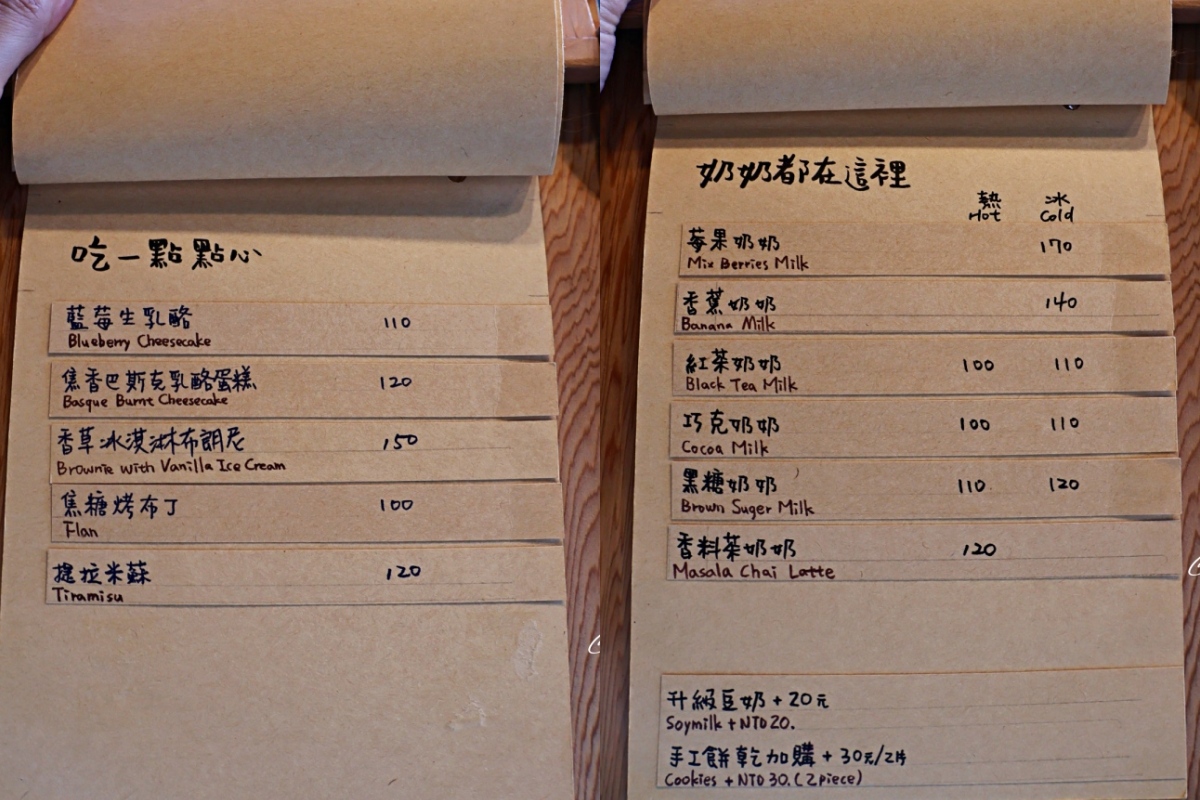 吃一點點心
藍莓生乳酪 110
Blueberry Cheesecake
焦香巴斯克乳酪蛋糕 120
Basque Burnt Cheesecake
香草冰淇淋布朗尼 150
Brownie with Vanilla Ice Cream
焦糖烤布丁 100
Flan
提拉米蘇 120
Tiramisu
奶奶都在這裡
熱 冰
Hot Cold
莓果奶奶 170
Mix Berries Milk
香蕉奶奶 140
Banana Milk
紅茶奶奶 100 110
Black Tea Milk
巧克奶奶 100 110
Cocoa Milk
黑糖奶奶 110 120
Brown Suger Milk
香料茶奶奶 120
Masala Chai Latte
升級豆奶+20元
Soymilk +NTD 20.
手工餅乾加購 +30元/2片
Cookies +NTD 30.(2piece)